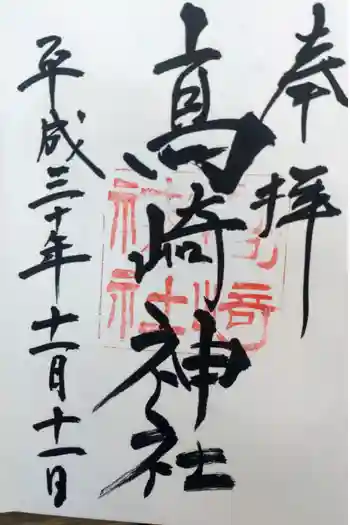 奉拝
高崎神社
平成三十年十一月十一日